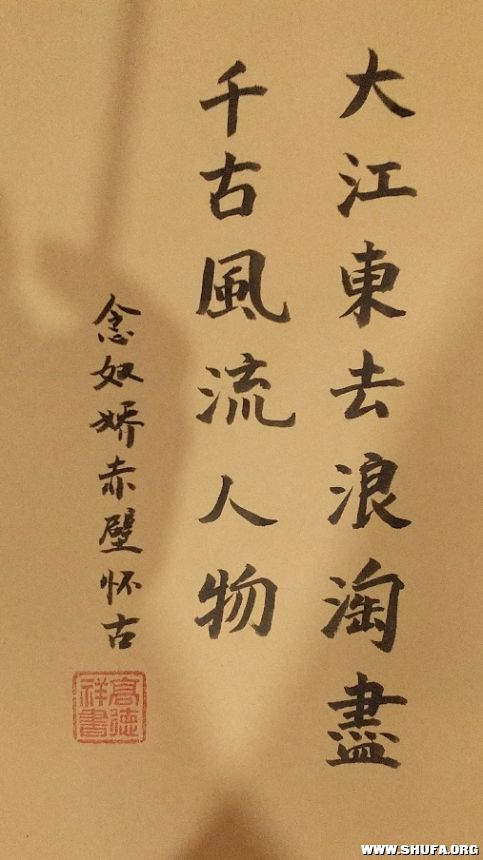 大江東去浪淘盡
千古風流人物
念奴娇赤壁怀古
高德祥書
WWW.SHUFA.ORG